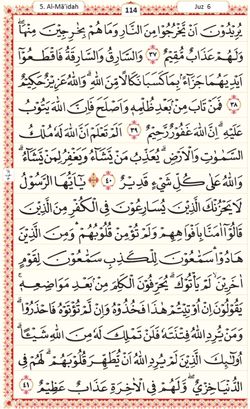 5. Al-Mā'idah
114
Juz 6
يُرِيْدُوْنَ اَنْ يَّخْرُجُوْا مِنَ النَّارِ وَمَا هُمْ بِخٰرِجِيْنَ مِنْهَا ۖ
وَلَهُمْ عَذَابٌ مُّقِيْمٌ ٣٧ وَالسَّارِقُ وَالسَّارِقَةُ فَاقْطَعُوْٓا
اَيْدِيَهُمَا جَزَاۤءًۢ بِمَا كَسَبَا نَكَالًا مِّنَ اللّٰهِ ۗ وَاللّٰهُ عَزِيْزٌ حَكِيْمٌ
٣٨ فَمَنْ تَابَ مِنْۢ بَعْدِ ظُلْمِهٖ وَاَصْلَحَ فَاِنَّ اللّٰهَ يَتُوْبُ
عَلَيْهِ ۗ اِنَّ اللّٰهَ غَفُوْرٌ رَّحِيْمٌ ٣٩ اَلَمْ تَعْلَمْ اَنَّ اللّٰهَ لَهٗ مُلْكُ
السَّمٰوٰتِ وَالْاَرْضِۗ يُعَذِّبُ مَنْ يَّشَاۤءُ وَيَغْفِرُ لِمَنْ يَّشَاۤءُ ۗ
وَاللّٰهُ عَلٰى كُلِّ شَيْءٍ قَدِيْرٌ ٤٠ يٰٓاَيُّهَا الرَّسُوْلُ
لَا يَحْزُنْكَ الَّذِيْنَ يُسَارِعُوْنَ فِى الْكُفْرِ مِنَ الَّذِيْنَ
قَالُوْٓا اٰمَنَّا بِاَفْوَاهِهِمْ وَلَمْ تُؤْمِنْ قُلُوْبُهُمْ ۛ وَمِنَ الَّذِيْنَ
هَادُوْا ۛ سَمّٰعُوْنَ لِلْكَذِبِ سَمّٰعُوْنَ لِقَوْمٍ
اٰخَرِيْنَۙ لَمْ يَأْتُوْكَ ۗ يُحَرِّفُوْنَ الْكَلِمَ مِنْۢ بَعْدِ مَوَاضِعِهٖۚ
يَقُوْلُوْنَ اِنْ اُوْتِيْتُمْ هٰذَا فَخُذُوْهُ وَاِنْ لَّمْ تُؤْتَوْهُ فَاحْذَرُوْا ۗ
وَمَنْ يُّرِدِ اللّٰهُ فِتْنَتَهٗ فَلَنْ تَمْلِكَ لَهٗ مِنَ اللّٰهِ شَيْـًٔا ۗ
اُولٰۤىِٕكَ الَّذِيْنَ لَمْ يُرِدِ اللّٰهُ اَنْ يُّطَهِّرَ قُلُوْبَهُمْ ۗ لَهُمْ فِى
الدُّنْيَا خِزْيٌ ۖ وَّلَهُمْ فِى الْاٰخِرَةِ عَذَابٌ عَظِيْمٌ ٤١